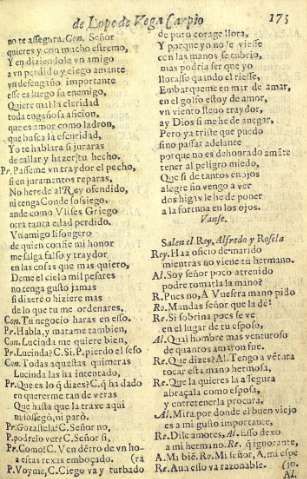 de Lope de Vega Carpio 175
no te assegura. Con. Señor
quieres y con macho estremo,
Y en diziendole vn amigo
a vn perdido y ciego amante
vn desengaño importante
esse es luego su enemigo,
Quiere mal la claridad
toda engañosa aficion,
que es amor como ladron,
que busca la escuridad,
Yo te hablara si juraras
de callar y hazer tu hecho.
Pr. Passeme vn traydor el pecho,
si en juramentos reparas,
No herede al Rey ofendido,
ni tenga Conde sossiego,
ande como Vlises Griego
otra tanta edad perdido.
Vn amigo lisongero
de quien confie mi honor
me salga falso y traydor
en las cosas que mas quiero,
Deme el cielo mil pesares
no tenga gusto jamas
si diseré o hiziere mas
de lo que tu me ordenares,
Con. Tu negocio haras en esso.
Pr. Habla, y matame tambien,
Con. Lucinda me quiere bien,
Pr. Lucinda? C. Si. P. pierdo el seso
Con. Todas aquestas quimeras
Lucinda las ha intentado,
Pr. Que es lo q̃ dizes? C. q̃ ha dado
en quererme tan de veras
Que hasta que la traxe aqui
no sossegó, ni paró.
Pr. Gozastela? C. Señor no,
P. podrelo ver? C. Señor si,
Pr. Como? C. Ven dẽtro de vn ho-
a essas rexas embozado. (ra
P. Voyme, C. Ciego va y turbado
de puro corage llora,
Y porque yo no le viesse
con las manos se cubrio,
mas podria ser que yo
llorasse quando el riesse,
Embarquente en mar de amar,
en el golfo estoy de amor,
vn viento lleuo traydor,
ay Dios si me he de anegar,
Pero ya triste que puedo
sino passar adelante
por que no es de honrado amãte
tener al peligro miedo,
Que si de tantos enojos
alegre fin vengo a ver
dos higas le he de poner
a la fortuna en los ojos.
Vanse.
Salen el Rey, Alfredo y Rosela
Rey. Haz oficio de marido
mientras no viene tu hermano.
Al. Soy señor poco atreuido
podre tomarla la mano?
R. Pues no, A. Vuestra mano pido
Ro. Mandas señor que la dé?
Re. Si sobrina pues se ve
en el lugar de tu esposo,
Al. Qual hombre mas venturoso
de quantos amaron fue.
Re. Que dizes? Al. Tengo a vẽtura
tocar esta mano hermosa,
Re. Que la quieras la assegura
abraçala como esposa,
y contenerla procura,
Al. Mira por donde el buen viejo
es a mi gusto importante,
Re. Dile amores, Al. esso dexo
a mi hermano. Re. q̃ ignorante,
A. Mi biẽ. Re. Mi señor, A. mi espe
Re. Aun esso va razonable. (jo
Al.